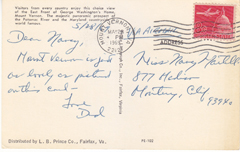 Visitors from every country enjoy this choice view
of the East Front of George Washington's Home,
Mount Vernon. The majestic panoramic prospect of
the Potomac River and the Maryland countryside is
world famous.
5/28/6
Dear Nancy,
Mount Vernon is just
as lovely as pictured
on this card -
Love
Dad
Distributed by L. B. Prince Co., Fairfax, Va.
ADDRESS
Miss Nancy
877
Monterey, Calif
93940